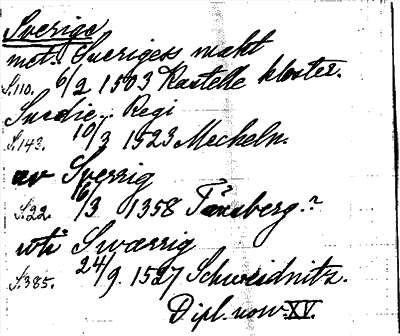 Sverige
mot. Sveriges makt
S.110. 6/2 1503 Kastelle kloster.
Suedie. Regi
S.143. 10/3 1523 Mecheln.
av Sverrig
S.22. 16/3 1358 Tønsberg.?
uti Swærrig
S.385. 24/9. 1527 Schweidnitz.
Dipl. norv. XV.